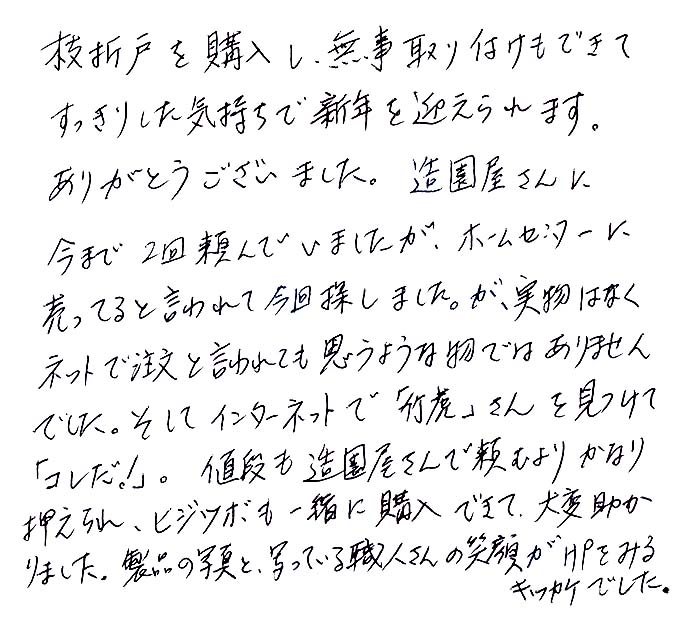 枝折戸を購入し、無事取り付けもできて
すっきりした気持ちで新年を迎えられます。
ありがとうございました。造園屋さんに
今まで2回頼んでいましたが、ホームセンターに
売ってると言われて今回探しました。が、実物はなく
ネットで注文と言われても思うような物ではありません
でした。そしてインターネットで「竹虎」さんを見つけて
「コレだ!」。値段も造園屋さんで頼むよりかなり
押えられ、ヒジツボも一緒に購入できて、大変助か
りました。製品の写真と、写っている職人さんの笑顔がHPをみる
キッカケでした。